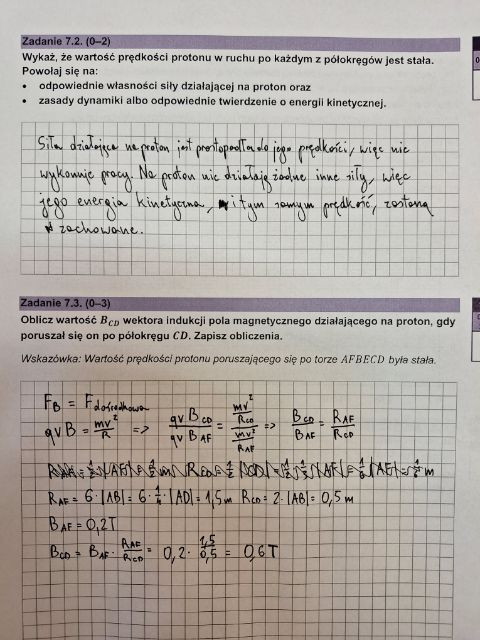 Zadanie 7.2. (0–2)
Wykaż, że wartość prędkości protonu w ruchu po każdym z półokręgów jest stała.
Powołaj się na:
• odpowiednie własności siły działającej na proton oraz
• zasady dynamiki albo odpowiednie twierdzenie o energii kinetycznej.
Siła działająca na proton jest prostopadła do jego prędkości, więc nie
wykonuje pracy. Na proton nie działają żadne inne siły, więc
jego energia kinetyczna, i tym samym prędkość, zostaną
zachowane.
Zadanie 7.3. (0–3)
Oblicz wartość B_CD wektora indukcji pola magnetycznego działającego na proton, gdy
poruszał się on po półokręgu CD. Zapisz obliczenia.
Wskazówka: Wartość prędkości protonu poruszającego się po torze AFBECD była stała.
F_B = F_dośrodkowa
qvB = mv²/R => qvB_CD/qvB_AF = (mv²/R_CD)/(mv²/R_AF) => B_CD/B_AF = R_AF/R_CD
R_AF = 6·|AB| = 6·1/4·|AD| = 1,5m R_CD = 2·|AB| = 0,5m
B_AF = 0,2T
B_CD = B_AF · R_AF/R_CD = 0,2 · 1,5/0,5 = 0,6T